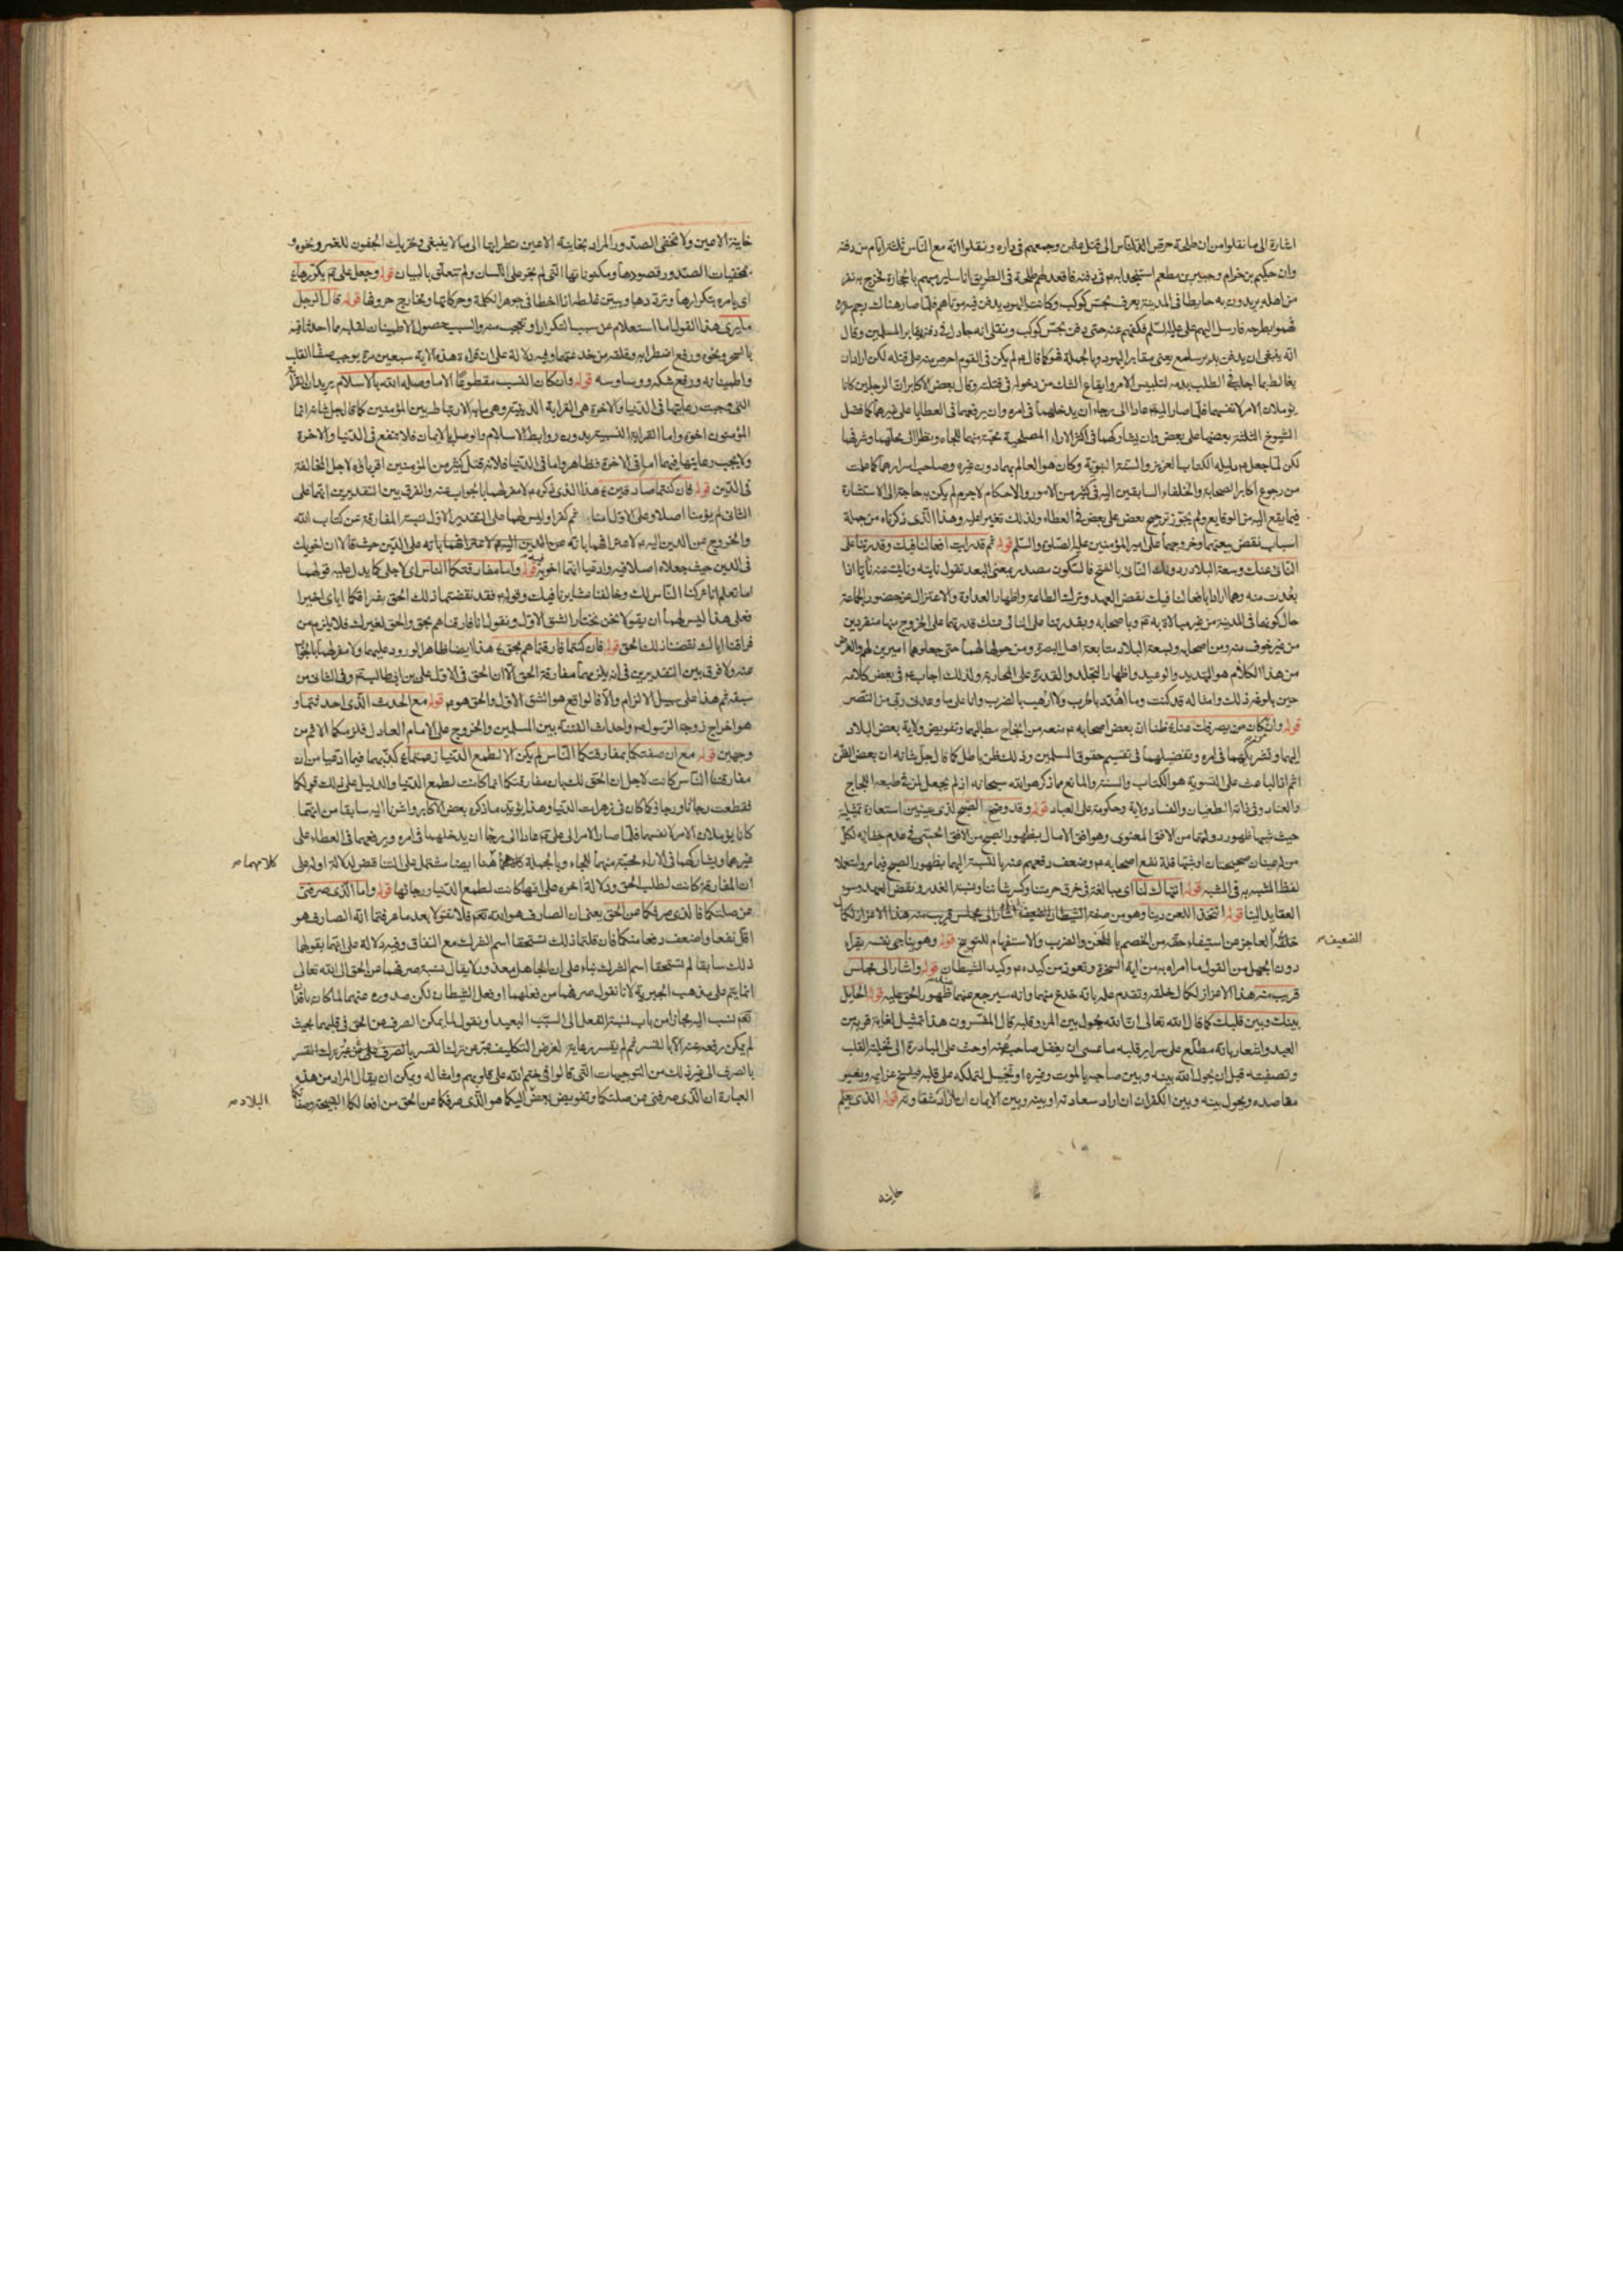 اشارة الى ما نقلوا من ان طلحة حرّص الناس الى قتل عثمن وجمعهم فى داره ونقلوا انه مع الناس ثلثة ايام من دفنه
وان حكيم بن خزام وجبير بن مطعم استنجدا به م فى دفنه فاقعد لهم طلحة فى الطريق اناسا يرميهم بالحجارة فخرج به نفر
من اهله يريدون به حايطا فى المدينة يعرف بحش كوكب وكانت اليهود يدفن فيه موتاهم فلما صار هناك رجم سريره
فهموا بطرحه فارسل اليهم على عليه السلم فكفهم عنه حتى دفن بحش كوكب ونقل انه جادل فى دفنه بمقابر المسلمين وقال
انه ينبغى ان يدفن بدير سلع يعنى مقابر اليهود وبالجملة فهو كما قال م لم يكن فى القوم احرص منه على قتله لكن اراد ان
يغالط بما اجلب فى الطلب بدمه لتلبيس الامر وايقاع الشك من دخوله فى قتله وقال بعض الاكابر ان الرجلين كانا
يؤملان الامر لانفسهما فلما صار اليه م عادا الى رجاء ان يدخلهما فى امره وان يرفعهما فى العطايا على غيرهما كما فضل
الشيوخ الثلثة بعضهما على بعض وان يشاركهما فى اكثر الاراء المصلحية محبة منهما للجاه ونظرا الى محلهما وشرفهما
لكن لما جعل م دليله الكتاب العزيز والسنة النبوية وكان هو العالم بهما دون غيره وصاحب اسرارهما كما علمت
من رجوع اكابر الصحابة والخلفاء السابقين اليه فى كثير من الامور والاحكام لاجرم لم يكن به حاجة الى الاستشارة
فيما يقع اليه من الوقايع ولم يجوّز ترجيح بعض على بعض فى العطاء ولذلك تغيرا عليه وهذا الذى ذكرناه من جملة
اسباب نقض بيعتهما وخروجهما على امير المؤمنين عليه الصلوة والسلم قوله ثم قد رايت افعالنا فيك وقدرتنا على
النائى عنك وسعة البلاد دونك النائى بالفتح فالسكون مصدر بمعنى البعد تقول نايته ونايت عنه نأيا اذا
بعدت منه وهما ارادا بافعالنا فيك نقض العهد وترك الطاعة واظهار العداوة والاعتزال عن حضور الجماعة
حال كونهما فى المدينة من غير مبالاة به م وباصحابه وبقدرتنا على النائى عنك قدرتهما على الخروج منها منفردين
من غير خوف منه ومن اصحابه وبسعة البلاد متابعة اهل البصرة ومن حولها لهما حتى جعلوهما اميرين لهم والغرض
من هذا الكلام هو التهديد والوعيد واظهار التجلد والقدرة على المحاربة ولذلك اجاب م فى بعض كلامه
حين بلوغه ذلك وامثاله قد كنت وما اهدد بالحرب ولا ارهب بالضرب وانا على ما وعدنى ربى من النصر
قوله وان كان من يصرفك عنا ظنا ان بعض اصحابه م منعه من انجاح مطالبهما وتفويض ولاية بعض البلاد
اليهما وتشريكهما فى امره وتفضيلهما فى تقسيم حقوق المسلمين وذلك ظن باطل كما قال جل شانه ان بعض الظن
اثم اذ الباعث على التسوية هو الكتاب والسنة والمانع ما ذكره والله سبحانه اذ لم يجعل لمن فى طبعه اللجاج
والعناد وفى ذاته الطغيان والفساد ولاية وحكومة على العباد قوله وقد وضح الصبح لذى عينين استعارة تمثيلية
حيث شبها ظهور دولتهما من الافق المعنوى وهو افق الامال بظهور الصبح من الافق الحسى فى عدم خفائه لكل
من له عينان صحيحتان او شبها قلة نفع اصحابه م وضعف دفعهم عنه بالنسبة اليهما بظهور الصبح فيما مر واستعملا
لفظ المشبه به فى المشبه قوله انتهاك لنا اى مبالغة فى خرق حرمتنا وكسر شاننا ونسبة الغدر ونقض العهد وسوء
العقايد الينا قوله اتتخذ اللعن دينا وهو من صفة الشيطان اشار الى مجلس قريب منه هذا الاعزاز لكمال
خلقه العاجز من استيفاء حقه من الخصم بالطعن والضرب والاستفهام للتوبيخ قوله وهو يناجى نفسه يقراء
دون الجهل من القول ما امراه به من اية السخرة وتعوذ من كيده م وكيد الشيطان قوله واشار الى مجلس
قريب منه هذا الاعزاز لكمال خلقه وتقدم علمه بانه خدع منهما وانه سيرجع عنهما ظهور الحق عليه قوله الحايل
بينك وبين قلبك كما قال الله تعالى ان الله يحول بين المرء وقلبه قال المفسرون هذا تمثيل لغاية قربه من
العبد واشعار بانه مطلع على سراير قلبه ما عسى ان يغفل صاحبه عنه او حث على المبادرة الى تخلية القلب
وتصفيته قبل ان يحول الله بينه وبين صاحبه بالموت وغيره او تخييل لتملكه على قلبه فيفسخ عزايمه ويغير
مقاصده ويحول بينه وبين الكفر ان اراد سعادته او بينه وبين الايمان ان اراد شقاوته قوله الذى يعلم
الضعيف
خاينة
خاينة الاعين ولا تخفى الصدور المراد بخاينة الاعين نظرايها الى ما لا ينبغى وتحريك الجفون للغمز ونحوه و
بمخفيات الصدور قصودها ومكنوناتها التى لم تجر على اللسان ولم تتعلق بالبيان قوله وجعل على م يكررها
اى يامره بتكرارها وترددها ويبين غلطه اذا اخطا فى جوهر الكلمة وحركاتها ومخارج حروفها قوله قال الرجل
ما يرى هذا القول اما استعلام عن سبب التكرار او تعجب منه والسبب حصول الاطمينان لقلبه مما احدثا فيه
بالسحر ونحوه ورفع اضطرابه وقلقه من خدعتهما وفيه دلالة على ان قراءة هذه الاية سبعين مرة يوجب صفاء القلب
واطمينانه ورفع شكه ووساوسه قوله وان كان النسب مقطوعا الا ما وصله الله بالاسلام يريد ان القرابة
التى وجبت رعايتها فى الدنيا والاخرة هى القرابة الدينية وهى ما به الارتباط بين المؤمنين كما قال جل شانه انما
المؤمنون اخوة واما القرابة النسبية بدون روابط الاسلام والوصل بالايمان فلا تنفع فى الدنيا والاخرة
ولا يجب رعايتها فيهما اما فى الاخرة فظاهر واما فى الدنيا فلانه قتل كثير من المؤمنين اقرباءه لاجل المخالفة
فى الدين قوله فان كنتما صادقين هذا الذى ذكره م لا مفر لهما بالجواب عنه والفرق بين التقديرين انهما على
الثانى لم يؤمنا اصلا وعلى الاول امنا ثم كفرا وليس لهما على التقدير الاول نسبة المفارقة عن كتاب الله
والخروج عن الدين اليه م لاعترافهما بانه على الدين حيث قالا ان اخويك
فى الدين حيث جعلاه اصلا فيه وادعيا انهما اخويه فيه قوله واما مفارقتكما الناس اى لاجلى كما يدل عليه قولهما
اما تعلم انا تركنا الناس لك وخالفنا عشايرنا فيك وقوله م فقد نقضتما ذلك الحق بفراقكما اياى اخيرا
فعلى هذا ليس لهما ان يقولا نحن نختار الشق الاول ونقول انا فارقناهم بحق والحق لغيرك فلا يلزم من
فراقنا اياك نقضنا ذلك الحق قوله فان كنتما فارقتماهم بحق هذا ايضا ظاهر الورود عليهما ولا مفر لهما بالجواب
عنه ولا فرق بين التقديرين فى انه يلزمهما مفارقة الحق الا ان الحق فى الاول على بن ابيطالب م وفى الثانى من
سبقه ثم هذا على سبيل الالزام والا فالواقع هو الشق الاول والحق هو م قوله مع الحدث الذى احدثتما و
هو اخراج زوجة الرسول م واحداث الفتنة بين المسلمين والخروج على الامام العادل فلزمكما الاثم من
وجهين قوله مع ان صفتكما بمفارقتكما الناس لم يكن الا لطمع الدنيا زعمتما كذبهما فيما ادعيا من ان
مفارقتنا الناس كانت لاجل ان الحق لك بان مفارقتكما انما كانت لطمع الدنيا والدليل على ذلك قولكما
فقطعت رجائنا ورجاؤكما كان فى زهرات الدنيا وهذا يؤيد ما ذكره بعض الاكابر واشرنا اليه سابقا من انهما
كانا يؤملان الامر لانفسهما فلما صار الامر الى على م عادا الى رجاء ان يدخلهما فى امره ويرفعهما فى العطاء على
غيرهما ويشاركهما فى الاراء محبة منهما للجاه وبالجملة هنا ايضا مشتمل على التناقض لدلالة اوله على
ان المفارقة كانت لطلب الحق ودلالة اخره على انها كانت لطمع الدنيا ورجائها قوله واما الذى صرفنى
عن صلتكما فالذى صرفكما عن الحق يعنى ان الصارف هو الله تعم فلا تقولا بعد ما عرفتما انه الصارف هو
اقل نفعا واضعف دفعا منكما فان قلتما ذلك تستحقا اسم الشرك مع النفاق وفيه دلالة على انهما بقولهما
ذلك سابقا لم تستحقا اسم الشرك بناء على ان الجاهل معذور لا يقال نسبة صرفهما عن الحق الى الله تعالى
انما يتم على مذهب الجبرية لانا نقول صرفهما من فعلهما او فعل الشيطان لكن صدوره عنهما لما كان باقدار
تعم نسب اليه مجازا من باب نسبة الفعل الى السبب البعيد او نقول لما يمكن الصرف عن الحق فى قلبهما بحيث
لم يكن رفعه عنه الا بالقسر ثم لم يقسر رعاية لغرض التكليف عبر عن ترك القسر بالصرف
بالصرف الى غير ذلك من التوجيهات التى قالوا فى ختم الله على قلوبهم وامثاله ويمكن ان يقال المراد من هذه
العبارة ان الذى صرفنى عن صلتكما وتفويض بعض اليكما هو الذى صرفكما عن الحق من افعالكما القبيحة وصفاتكما
كلامهما
البلاد